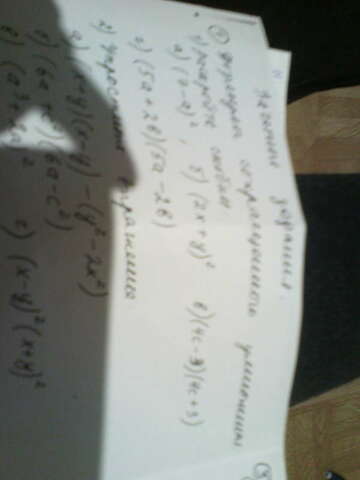 Зачетные задания.
① Формулы сокращенного умножения
1) раскройте скобки
а) (7-a)², б) (2x+y)² в) (4c-3)(4c+3)
г) (5a+2b)(5a-2b)
2) Упростите выражение
а) (x+y)(x-y) - (y²-2x²)
б) -c²)
в) г) (x-y)²(x+y)²